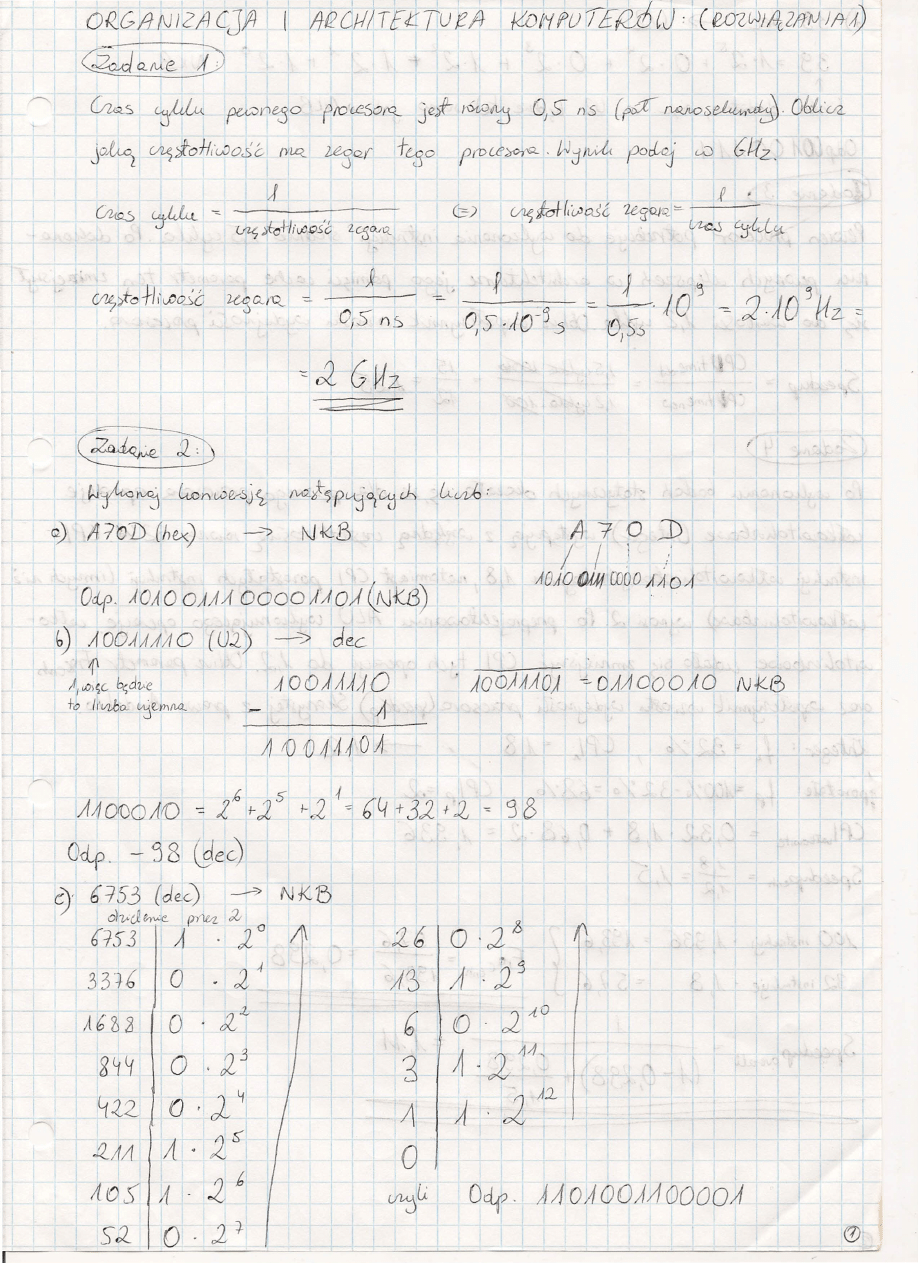 ORGANIZACJA I ARCHITEKTURA KOMPUTERÓW: (ROZWIĄZANIA 1)
Zadanie 1:
Czas cyklu pewnego procesora jest równy 0,5 ns (pół nanosekundy). Oblicz
jaką częstotliwość ma zegar tego procesora. Wynik podaj w GHz.
Czas cyklu = 1 / częstotliwość zegara <=> częstotliwość zegara = 1 / czas cyklu
częstotliwość zegara = 1 / 0,5 ns = 1 / 0,5·10⁻⁹ s = 1 / 0,5s · 10⁹ = 2·10⁹ Hz =
= 2 GHz
Zadanie 2:
Wykonaj konwersję następujących liczb:
a) A70D (hex) → NKB
A 7 0 D
1010 0111 0000 1101
Odp. 1010011100001101 (NKB)
b) 10011110 (U2) → dec
↑
1, więc będzie
to liczba ujemna
10011110
- 1
10011101
10011101 = 01100010 NKB
1100010 = 2⁶ + 2⁵ + 2¹ = 64 + 32 + 2 = 98
Odp. -98 (dec)
c) 6753 (dec) → NKB
dzielenie przez 2
6753 | 1 · 2⁰
3376 | 0 · 2¹
1688 | 0 · 2²
844 | 0 · 2³
422 | 0 · 2⁴
211 | 1 · 2⁵
105 | 1 · 2⁶
52 | 0 · 2⁷
26 | 0 · 2⁸
13 | 1 · 2⁹
6 | 0 · 2¹⁰
3 | 1 · 2¹¹
1 | 1 · 2¹²
0
czyli Odp. 1101001100001
1